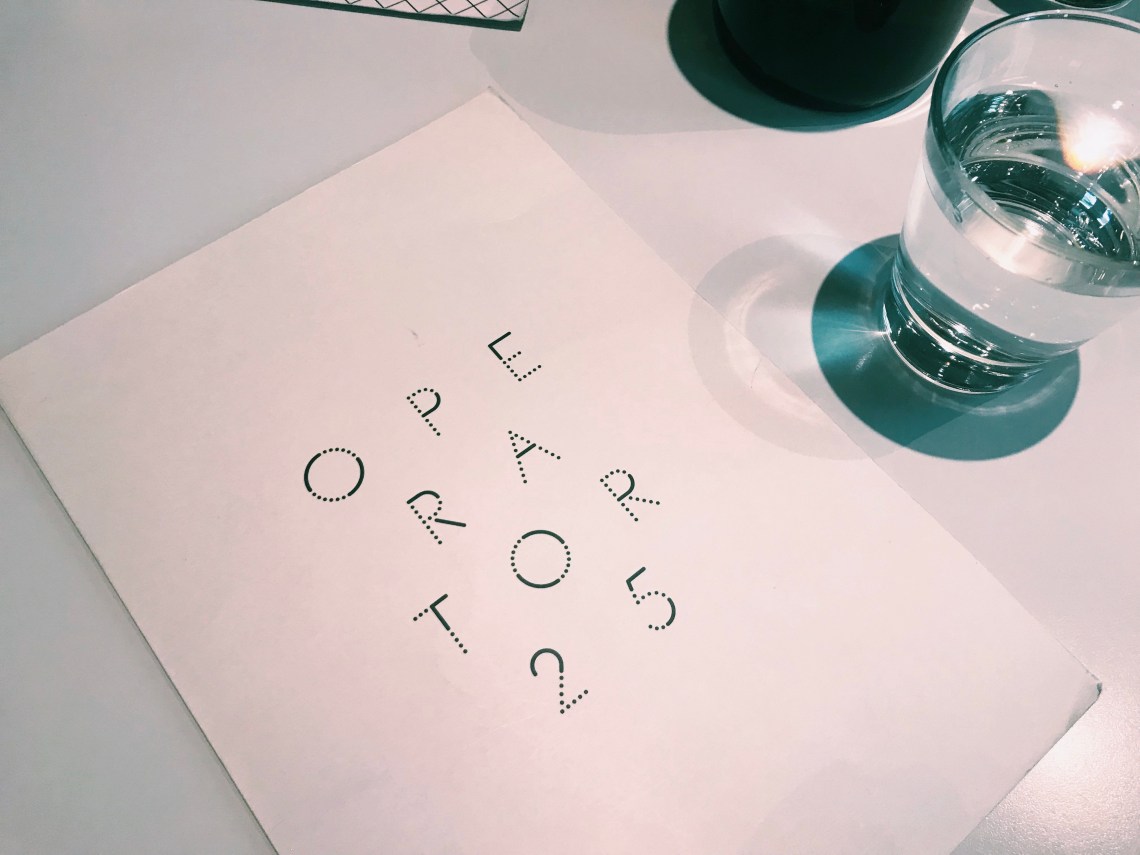 OPE
RA
TOR
25